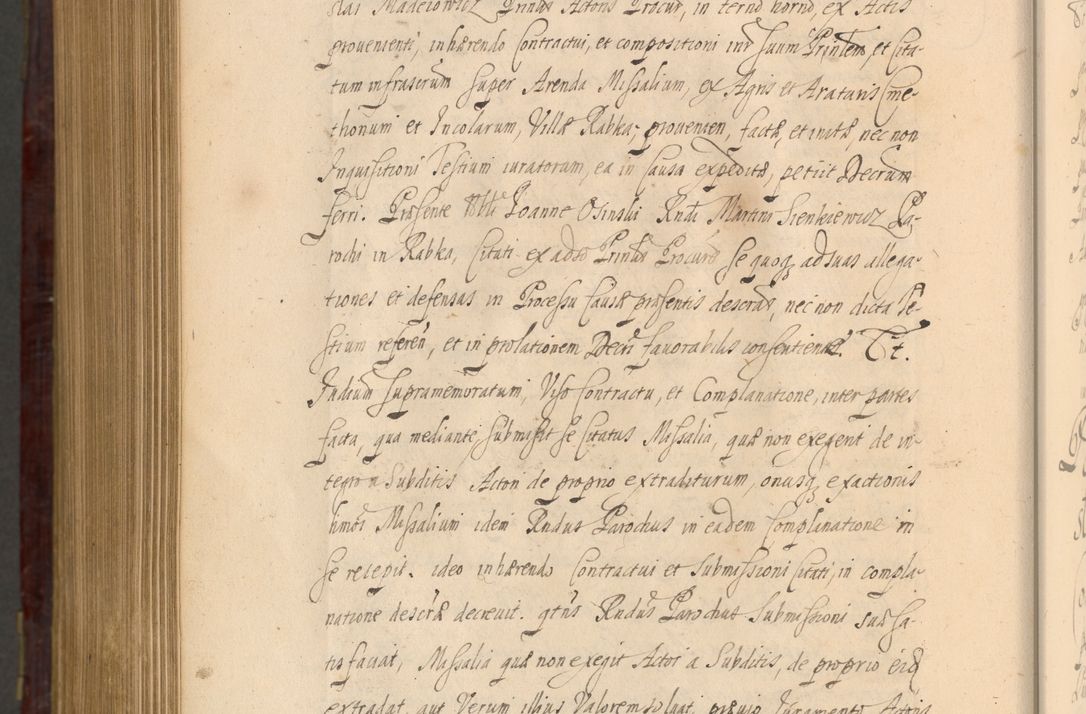 slai Madeiowicz Prinlis Actoris Procur, in term̃o hornõ, ex Actis
provenienti, inhærendo Contractui, et compositioni inr̃ suum Prinlem, et Cita-
tum infrascrum super Arenda Missalium, ex Agris et Araturis Cme-
thonum et Incolarum, Villæ Rabka, provenien, factæ, et initæ, nec non
Inquisitioni Testium iuratorum, ea in causa expeditæ, petiit Decrum
ferri. Præsente Nbli Joanne Osinski Rndi Martini Sienkiewicz Pa-
rochi in Rabka, Citati ex adso Prinlis Procure se quoqȝ ad suas allega-
tiones et defensas in Processu causæ præsentis descrãs, nec non dicta Te-
stium referen, et in prolationem Decri favorabilis consentiente. Tt.
Judium supramemoratum, Viso Contractu, et Complanatione, inter partes
facta, qua mediante submisit se Citatus Missalia, quæ non exegerit de in-
tegro a Subditis Actori de proprio extraditurum, onusqȝ exactionis
hmõi Missalium idem Rndus Parochus in eadem Complanatione in
se recepit. ideo inhærendo Contractui et Submissioni Citati, in compla-
natione descrã decrevit. qtñs Rndus Parochus Submissioni suæ sa-
tisfaciat, Missalia quæ non exegit Actori a Subditis, de proprio eidȝ
extradat, aut Verum illius Valorem solvat, prævio Juramento Actoris